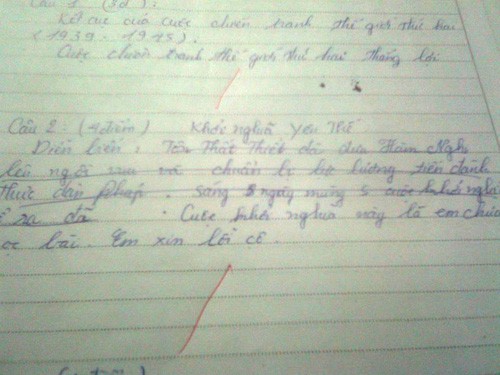 Câu 1 (3đ):
Kết cục của cuộc chiến tranh thế giới thứ hai
(1939 - 1945).
Cuộc chiến tranh thế giới thứ hai thắng lợi
Câu 2: (4điểm) Khởi nghĩa Yên Thế
Diễn biến: Tôn Thất Thuyết đã đưa Hàm Nghi
lên ngôi vua và chuẩn bị lực lượng tiến đánh
thực dân Pháp. sáng 5 ngày mùng 5 cuộc khởi nghĩa
ra đã. Cuộc khởi nghĩa này là em chưa
học bài. Em xin lỗi cô.